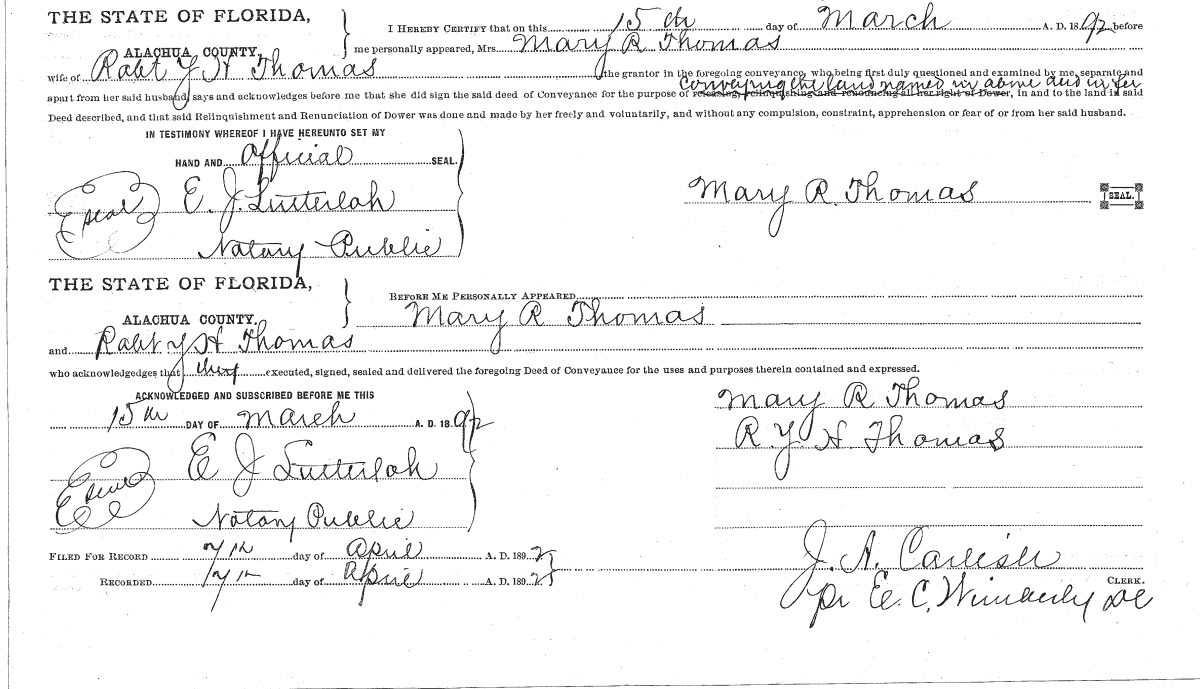 THE STATE OF FLORIDA,
ALACHUA COUNTY.
I HEREBY CERTIFY that on this 15th day of March A. D. 1892 before
me personally appeared, Mrs. Mary R Thomas
wife of Robt Y H Thomas the grantor in the foregoing conveyance, who being first duly questioned and examined by me, separate and
conveying the land named in above and in fee
apart from her said husband, says and acknowledges before me that she did sign the said deed of Conveyance for the purpose of releasing, relinquishing and renouncing all her right of Dower, in and to the land in said
Deed described, and that said Relinquishment and Renunciation of Dower was done and made by her freely and voluntarily, and without any compulsion, constraint, apprehension or fear of or from her said husband.
IN TESTIMONY WHEREOF I HAVE HEREUNTO SET MY
HAND AND Official SEAL.
seal E. J. Lutterloh
Mary R. Thomas SEAL.
Notary Public
THE STATE OF FLORIDA,
ALACHUA COUNTY.
BEFORE ME PERSONALLY APPEARED
Mary R Thomas
and Robt Y H Thomas
who acknowledgedges that they executed, signed, sealed and delivered the foregoing Deed of Conveyance for the uses and purposes therein contained and expressed.
ACKNOWLEDGED AND SUBSCRIBED BEFORE ME THIS
15th DAY OF March A. D. 1892
Mary R Thomas
R. Y H Thomas
seal E J Lutterloh
Notary Public
FILED FOR RECORD 7th day of April A. D. 1892
RECORDED day of April A. D. 1892
J. A. Carlisle
CLERK.
pr E. C. Wimberly DC